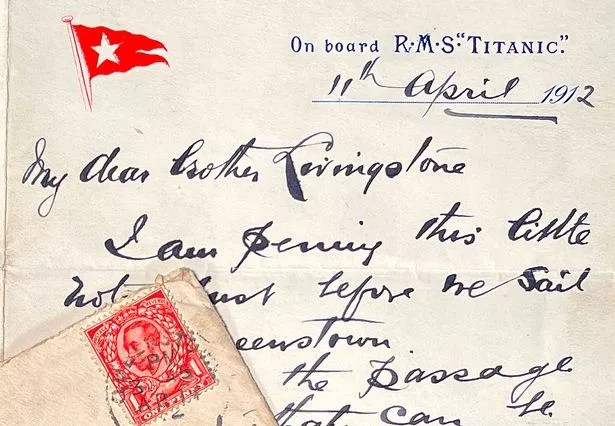 On board R·M·S "TITANIC".
11th April 1912
My dear brother Livingstone
I am penning this little
just before we sail
Queenstown
the passage
that can be
ONE PENNY